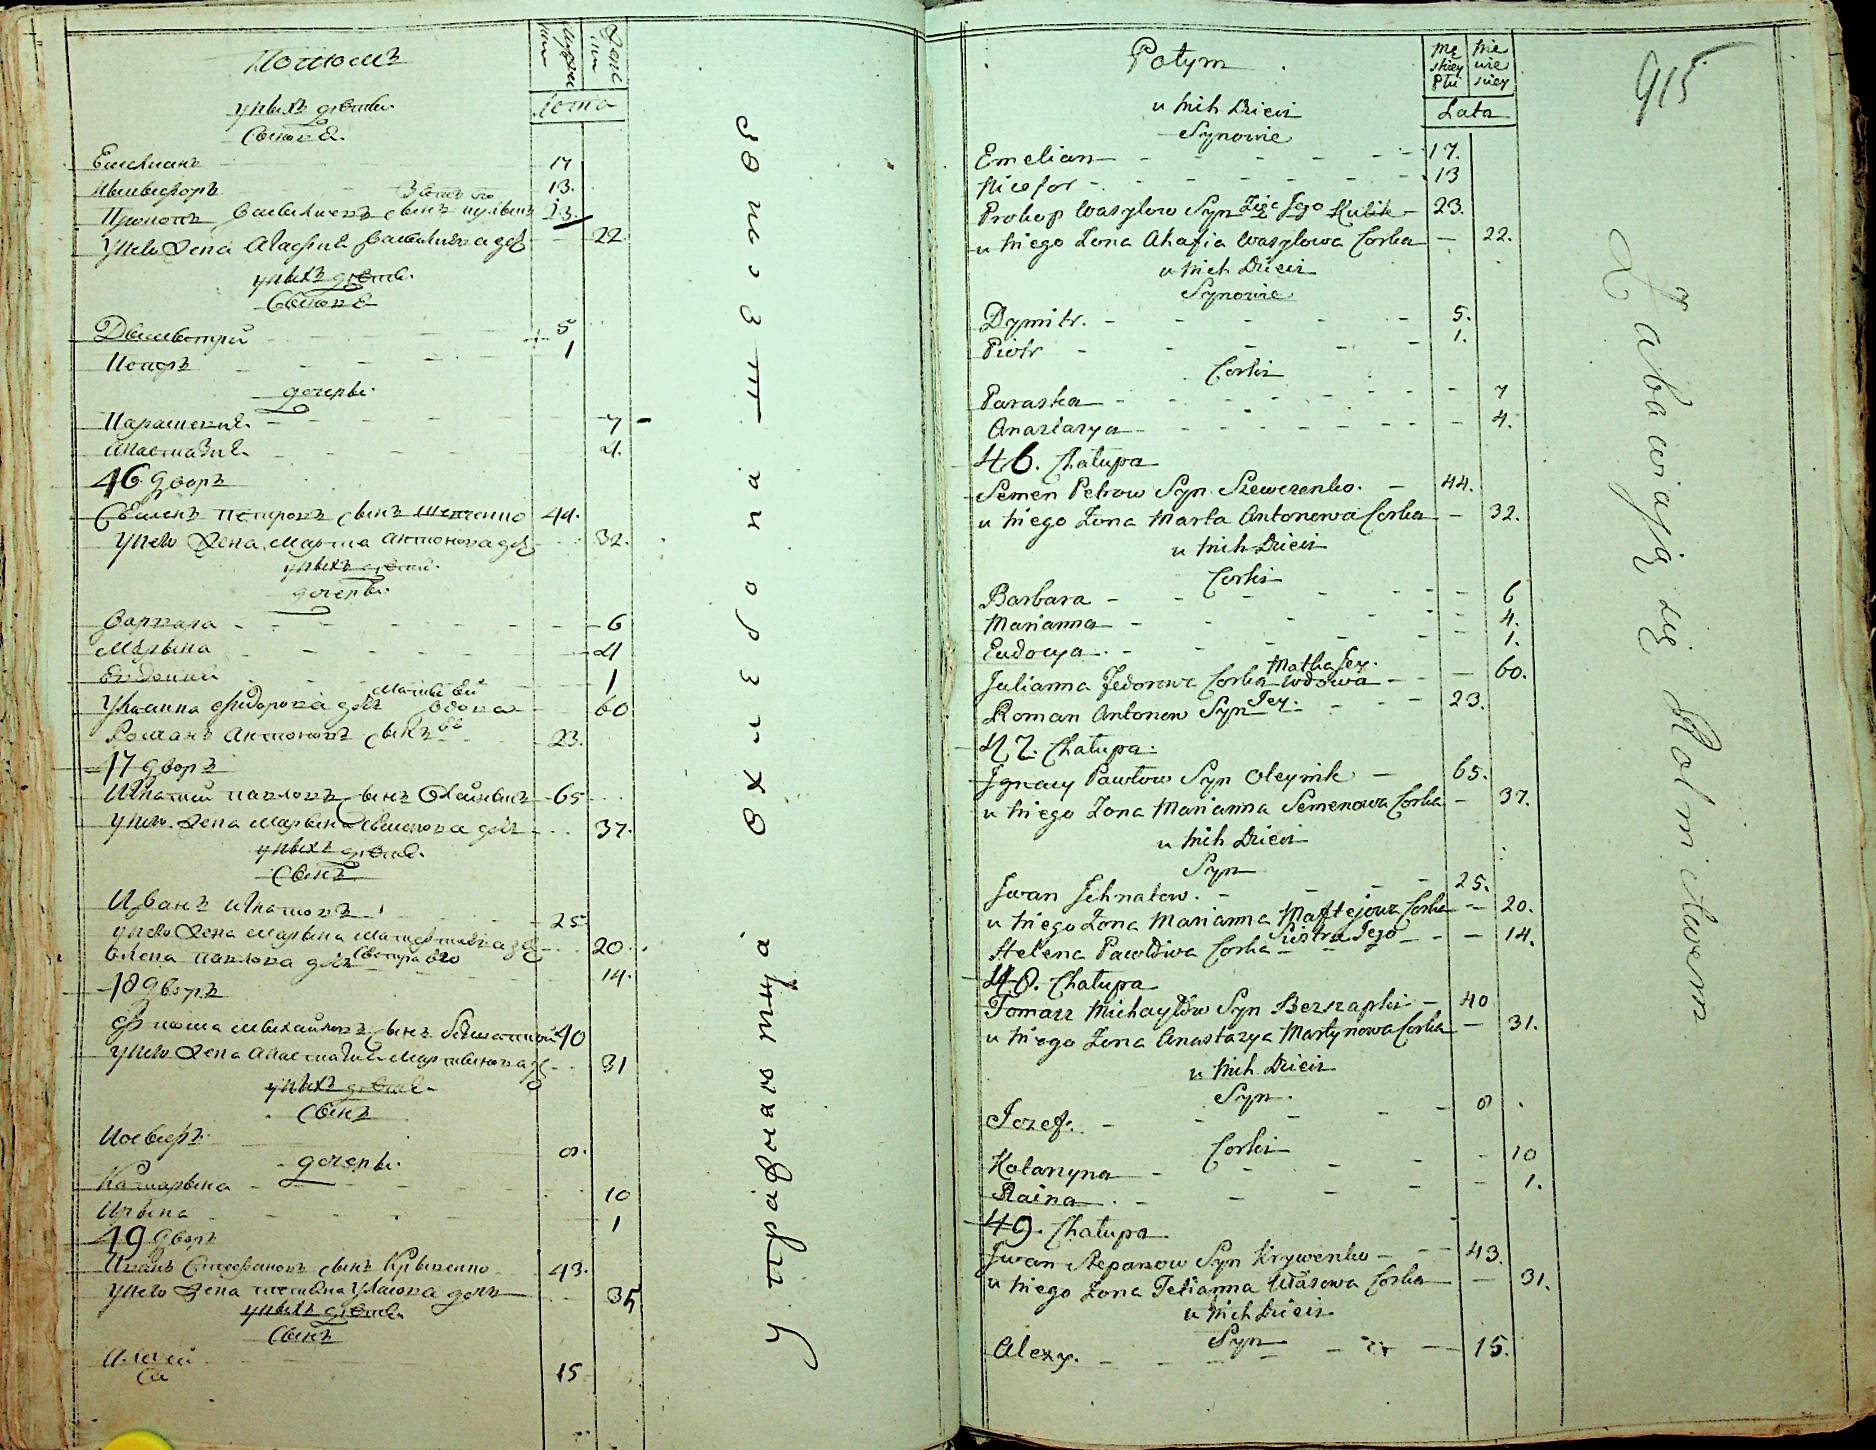 Потомъ
муже ска
женс ка
лета
у нихъ дети
Сынове
Емелианъ 17
Никифоръ 13.
Прокопъ Василиевъ сынъ зять его куликъ 23.
у него жена Агафия Василиева доч 22
у нихъ дети
Сынове
Димитрий 5
Петръ 1
дочери
Параскевия 7
Анастазия 4.
46 дворъ
Семенъ Петровъ сынъ Шевченко 44.
у него жена Марта Антонова доч 32.
у нихъ дети
дочери
Варвара 6
Марина 4
Евдокия 1
Улианна Федорова доч мать ей вдова 60
Романъ Антоновъ сынъ ее 23.
47 дворъ
Игнатий Павловъ сынъ Олейникъ 65
у него жена Марина Семенова доч 37.
у нихъ дети
Сынъ
Иванъ Игнатовъ 25
у него жена Марина доч 20
Елена Павлова доч сестра его 14.
48 дворъ
Фома Михайловъ сынъ 40
у него жена Анастазия Мартинова доч 31
у нихъ дети
Сынъ
Иосифъ 8.
дочери
Катарина 10
Ирина 1
49 дворъ
Иванъ Стефановъ сынъ Кривенко 43.
у него жена Татияна Уласова доч 35
у нихъ дети
Сынъ
Алексей 15
упражняютца
в хлебо
Potym
Mę skiey Płci
Nie wie sciey
Lata
u nich Dzieci
Synowie
Emelian 17.
Nicefor 13
Prokop Wasylow Syn Zięć Jego Kulik 23.
u niego Zona Ahafia Wasylowa Corka 22.
u nich Dzieci
Synowie
Dymitr. 5.
Piotr 1.
Corki
Paraska 7
Anastazya 4.
46. Chałupa
Semen Petrow Syn Szewczenko. 44.
u niego Zona Marta Antonowa Corka 32.
u nich Dzieci
Corki
Barbara 6
Marianna 4.
Eudocya 1.
Julianna Fedorowa Corka Matka Jey. Wdowa 60.
Roman Antonow Syn Jey. 23.
47. Chałupa.
Ignacy Pawłow Syn Oleynik 65.
u niego Zona Marianna Semenowa Corka 37.
u nich Dzieci
Syn
Jwan Jehnatow. 25.
u niego Zona Marianna Maftejowa Corka 20.
Helena Pawłowa Corka Siostra Jego 14.
48. Chałupa
Tomasz Michayłow Syn Bezszapki 40
u niego Zona Anastazya Martynowa Corka 31.
u nich Dzieci
Syn.
Jozef. 8
Corki
Katarzyna 10
Raina 1.
49. Chałupa
Jwan Stepanow Syn Krywenko 43.
u niego Zona Tetianna Własowa Corka 31.
u nich Dzieci
Syn
Alexy. 15.
915
Zabawiają się Rolnictwem